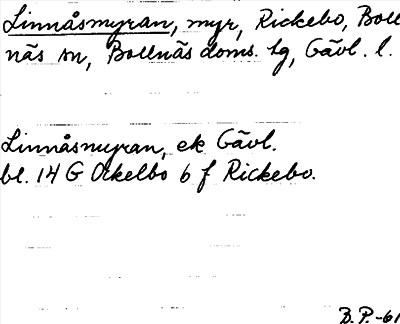 Linnåsmyran, myr, Rickebo, Boll
näs sn, Bollnäs doms. lg, Gävl. l.
Linnåsmyran, ek Gävl.
bl. 14 G Ockelbo 6 f Rickebo.
B.P.-61